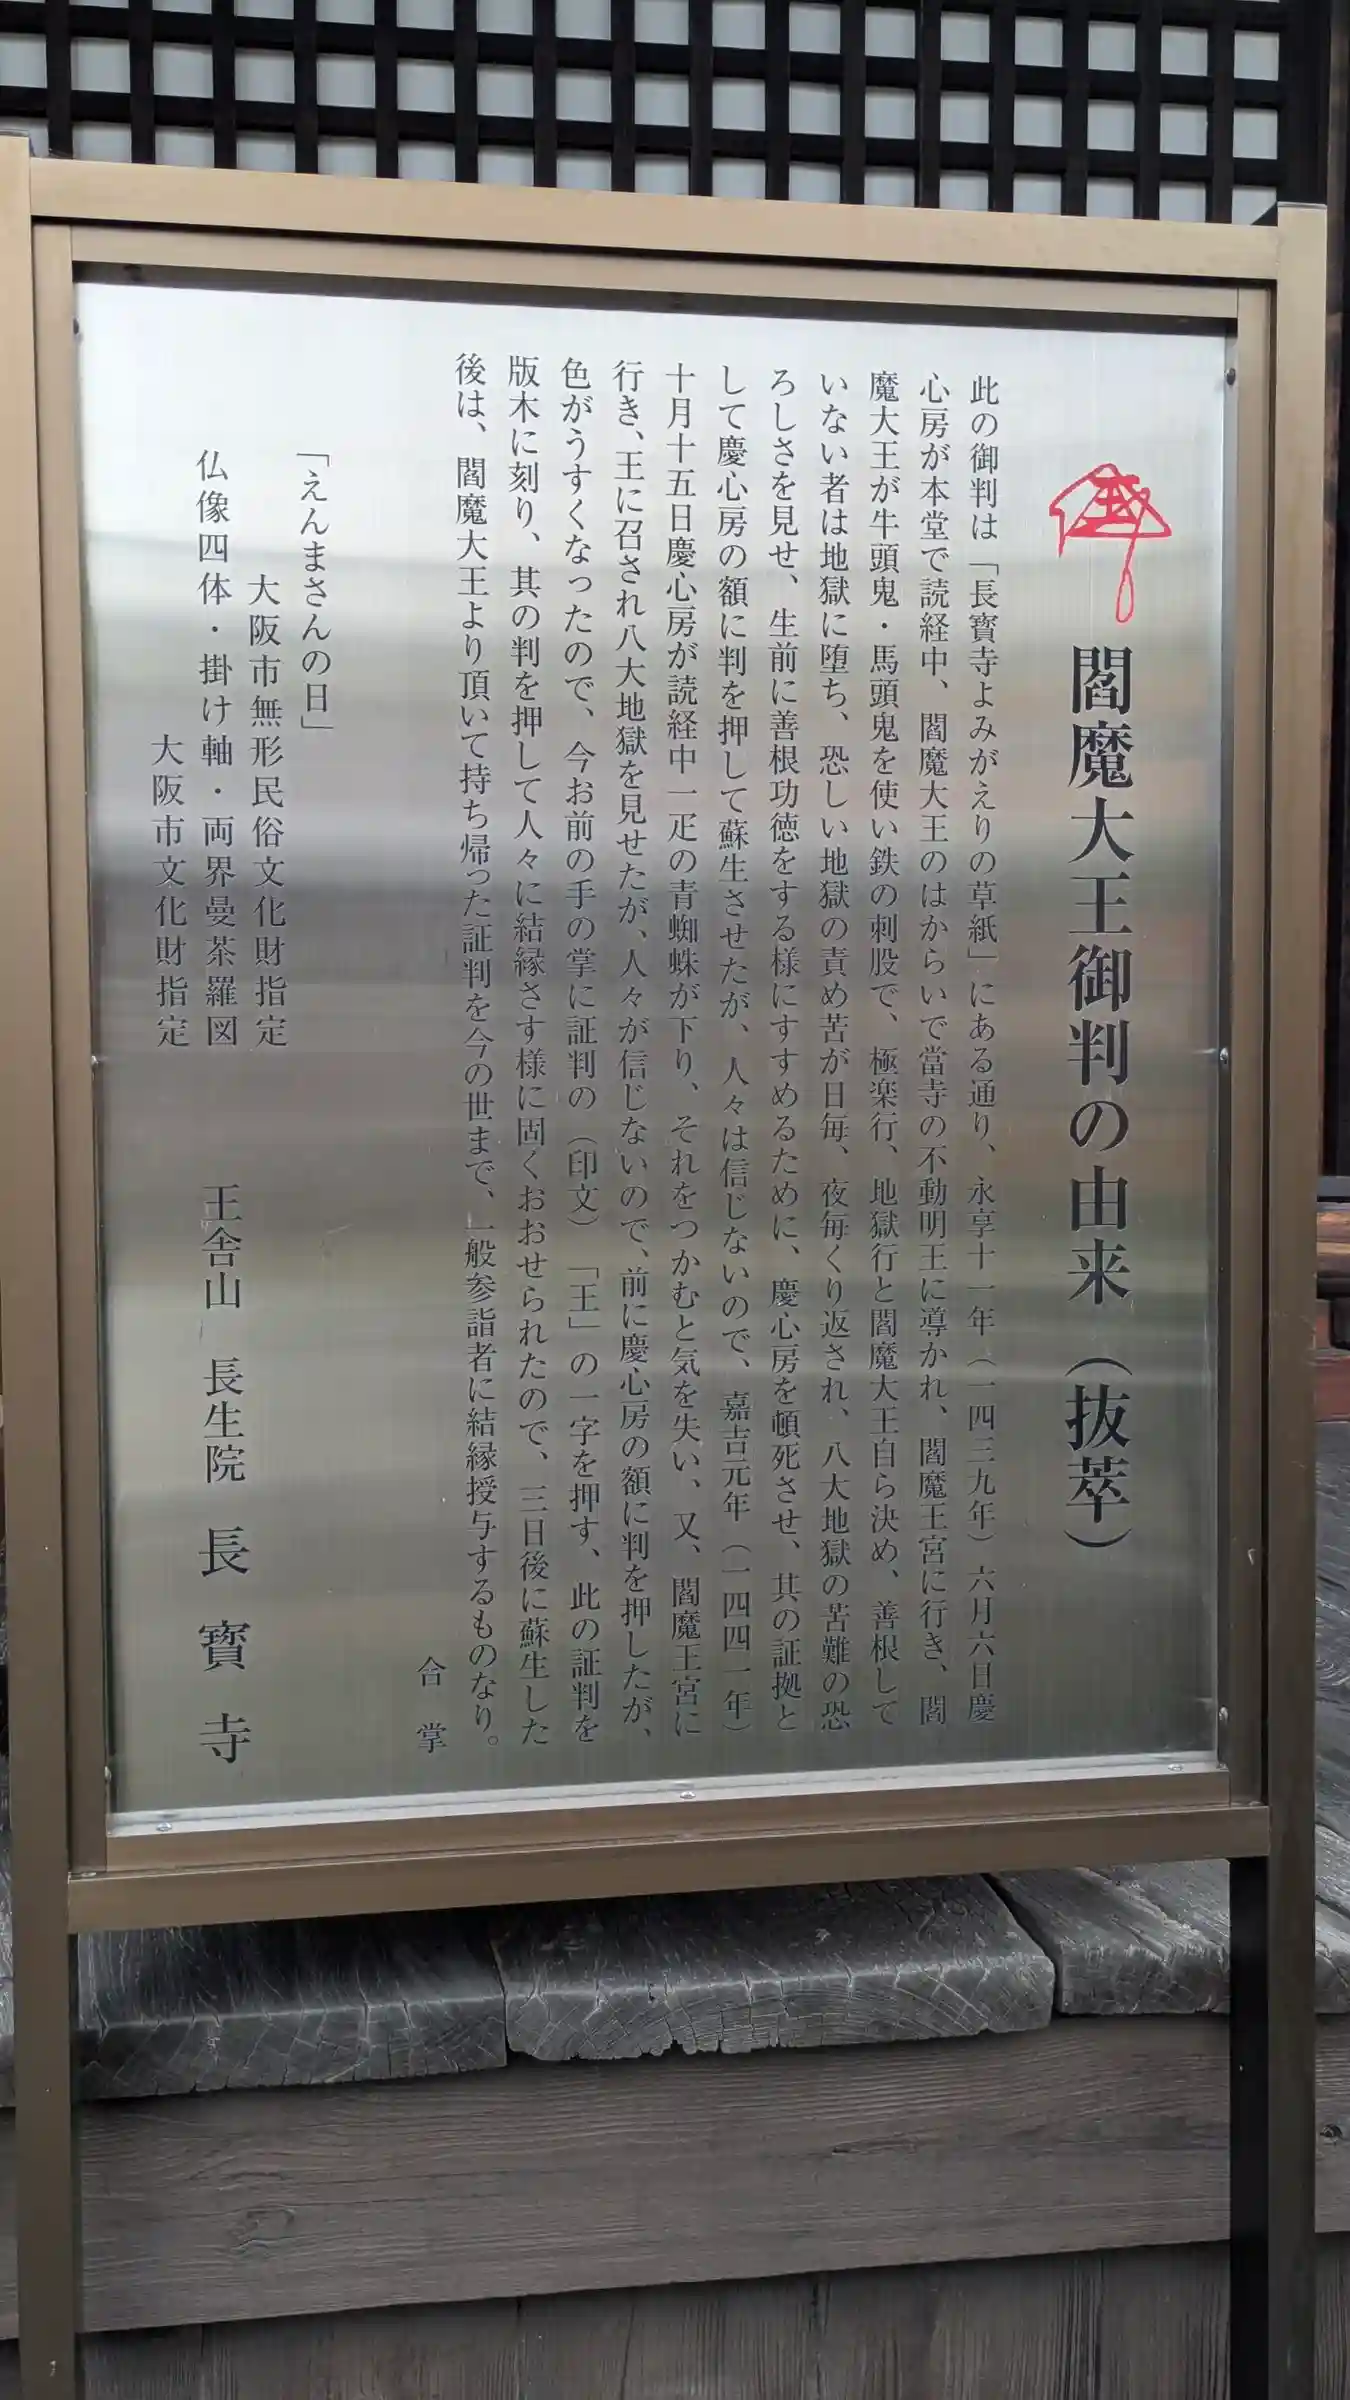 閻魔大王御判の由来（抜萃）
此の御判は「長寳寺よみがえりの草紙」にある通り、永享十一年（一四三九年）六月六日慶
心房が本堂で読経中、閻魔大王のはからいで當寺の不動明王に導かれ、閻魔王宮に行き、閻
魔大王が牛頭鬼・馬頭鬼を使い鉄の刺股で、極楽行、地獄行と閻魔大王自ら決め、善根して
いない者は地獄に堕ち、恐しい地獄の責め苦が日毎、夜毎くり返され、八大地獄の苦難の恐
ろしさを見せ、生前に善根功徳をする様にすすめるために、慶心房を頓死させ、其の証拠と
して慶心房の額に判を押して蘇生させたが、人々は信じないので、嘉吉元年（一四四一年）
十月十五日慶心房が読経中一疋の青蜘蛛が下り、それをつかむと気を失い、又、閻魔王宮に
行き、王に召され八大地獄を見せたが、人々が信じないので、前に慶心房の額に判を押したが、
色がうすくなったので、今お前の手の掌に証判の（印文）「王」の一字を押す、此の証判を
版木に刻り、其の判を押して人々に結縁さす様に固くおおせられたので、三日後に蘇生した
後は、閻魔大王より頂いて持ち帰った証判を今の世まで、一般参詣者に結縁授与するものなり。
合掌
「えんまさんの日」
大阪市無形民俗文化財指定
仏像四体・掛け軸・両界曼茶羅図
大阪市文化財指定
王舎山 長生院 長寳寺